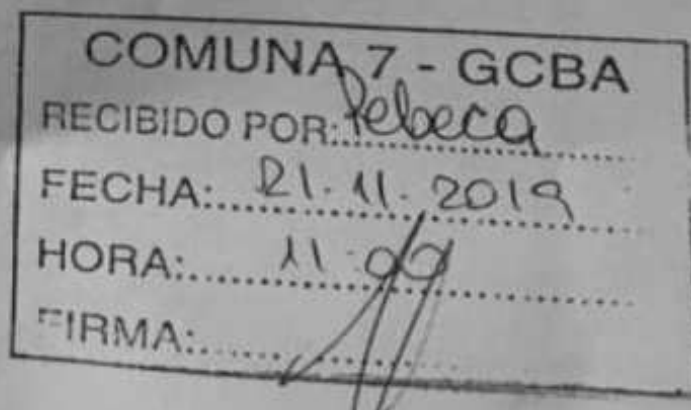 COMUNA 7 - GCBA
RECIBIDO POR: Rebeca
FECHA: 21.11.2019
HORA: 11:00
FIRMA: